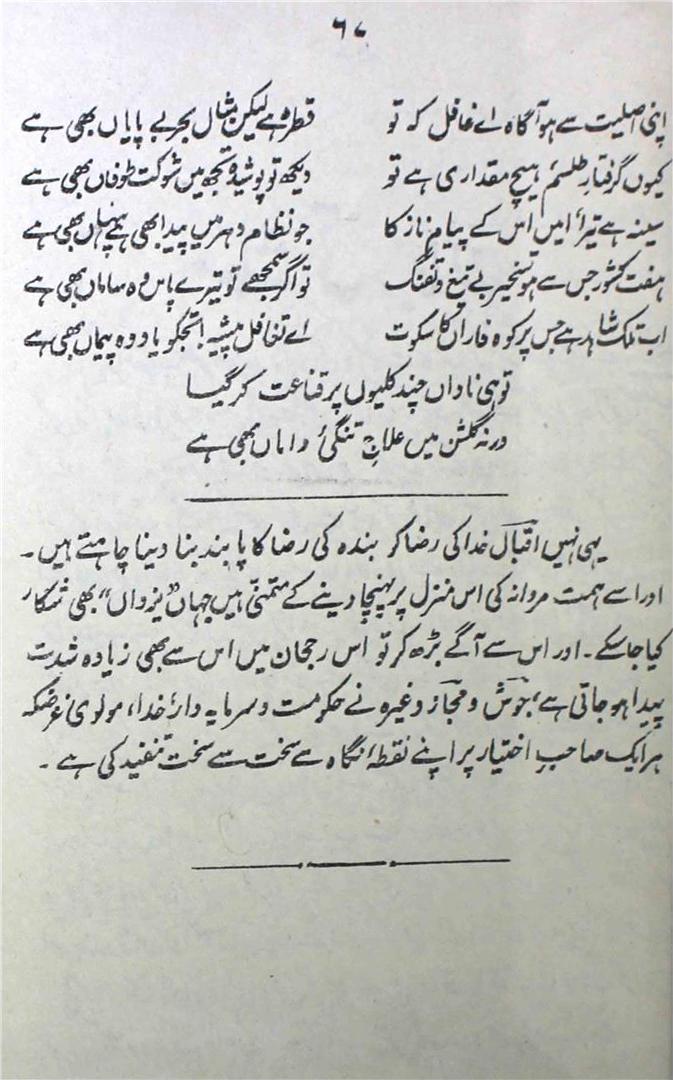 ۶۷
اپنی اصلیت سے ہو آگاہ اے غافل کہ تو قطرہ ہے لیکن مثال بحر بے پایاں بھی ہے
کیوں گرفتارِ طلسمِ ہیچ مقداری ہے تو دیکھ تو پوشیدہ تجھ میں شوکت طوفاں بھی ہے
سینہ ہے تیرا امیں اس کے پیام ناز کا جو نظام دہر میں پیدا بھی ہے پنہاں بھی ہے
ہفت کشور جس سے ہو تسخیر بے تیغ و تفنگ تو اگر سمجھے تو تیرے پاس وہ ساماں بھی ہے
اب تلک شاہد ہے جس پر کوہ فاراں کا سکوت اے تغافل پیشہ! تجکو یاد وہ پیماں بھی ہے
تو ہی ناداں چند کلیوں پر قناعت کر گیا
ورنہ گلشن میں علاجِ تنگئ داماں بھی ہے
یہی نہیں اقبال خدا کی رضا کو بندہ کی رضا کا پابند بنا دینا چاہتے ہیں۔
اور اسے ہمت مردانہ کی اس منزل پر پہنچا دینے کے متمنی ہیں جہاں ”یزداں“ بھی شکار
کیا جا سکے۔ اور اس سے آگے بڑھ کر تو اس رجحان میں اس سے بھی زیادہ شدت
پیدا ہو جاتی ہے، جوش و مجاز وغیرہ نے حکومت و سرمایہ دار، خدا، مولوی غرضکہ
ہر ایک صاحبِ اختیار پر اپنے نقطۂ نگاہ سے سخت سے سخت تنقید کی ہے۔